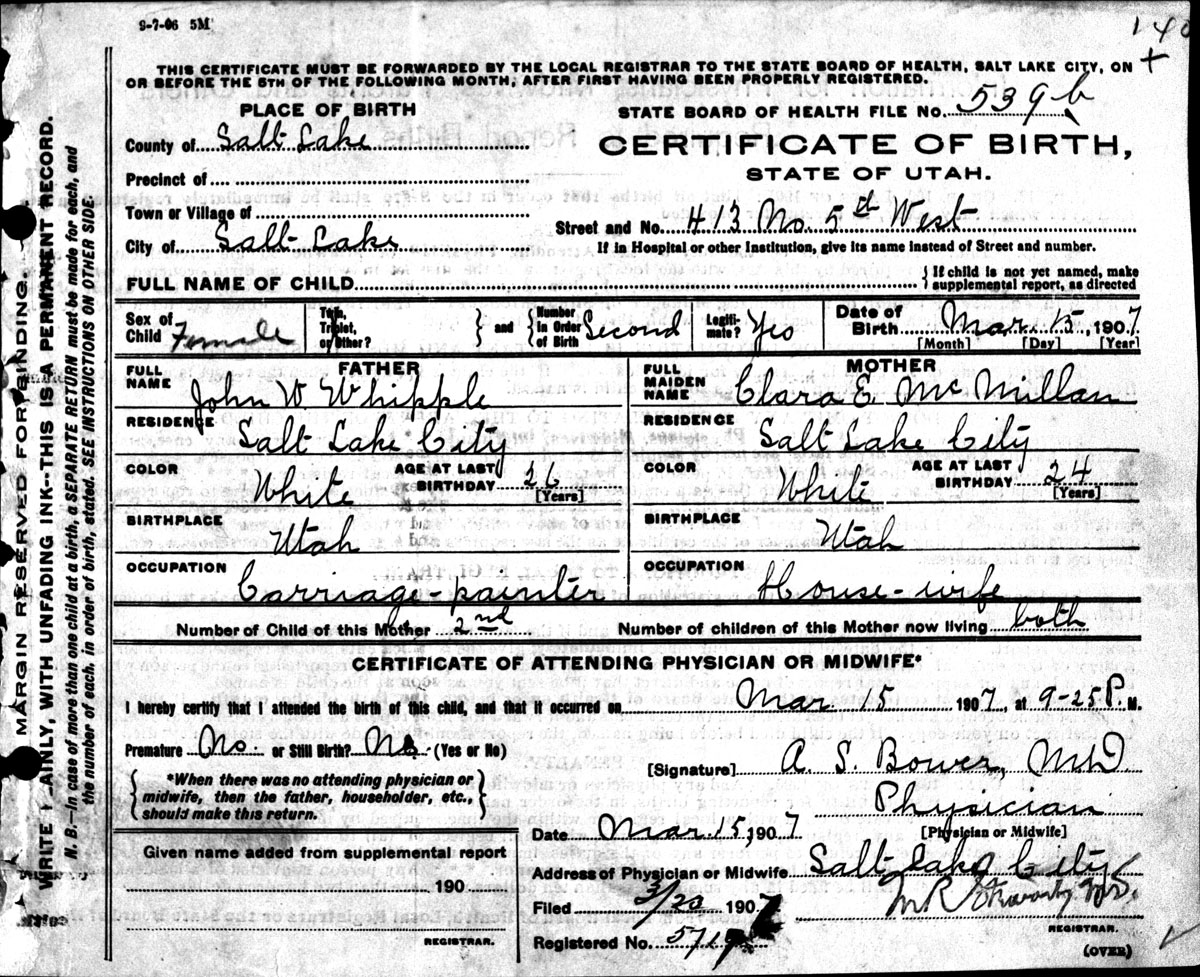 9-7-06 5M
140
+
THIS CERTIFICATE MUST BE FORWARDED BY THE LOCAL REGISTRAR TO THE STATE BOARD OF HEALTH, SALT LAKE CITY, ON
OR BEFORE THE 5TH OF THE FOLLOWING MONTH, AFTER FIRST HAVING BEEN PROPERLY REGISTERED.
PLACE OF BIRTH
STATE BOARD OF HEALTH FILE No. 539 b
County of Salt Lake
CERTIFICATE OF BIRTH,
STATE OF UTAH.
Precinct of
Town or Village of
Street and No. 413 No. 5th West
City of Salt Lake
If in Hospital or other Institution, give its name instead of Street and number.
FULL NAME OF CHILD
{ If child is not yet named, make
supplemental report, as directed
Sex of Child Female
Twin, Triplet, or Other? } and { Number in Order of Birth Second
Legitimate? Yes
Date of Birth Mar. 15, 1907
[Month] [Day] [Year]
FATHER
FULL NAME John W. Whipple
RESIDENCE Salt Lake City
COLOR White AGE AT LAST BIRTHDAY 26 [Years]
BIRTHPLACE Utah
OCCUPATION Carriage-painter
MOTHER
FULL MAIDEN NAME Clara E. McMillan
RESIDENCE Salt Lake City
COLOR White AGE AT LAST BIRTHDAY 24 [Years]
BIRTHPLACE Utah
OCCUPATION House-wife
Number of Child of this Mother 2nd Number of children of this Mother now living both
CERTIFICATE OF ATTENDING PHYSICIAN OR MIDWIFE*
I hereby certify that I attended the birth of this child, and that it occurred on Mar. 15 1907, at 9-25 P. M.
Premature No. or Still Birth? No. (Yes or No)
{ *When there was no attending physician or
midwife, then the father, householder, etc.,
should make this return. }
[Signature] A. S. Bower, M.D.
Physician
[Physician or Midwife]
Date Mar. 15, 1907
Given name added from supplemental report
190
REGISTRAR.
Address of Physician or Midwife Salt Lake City
Filed 3/20 1907
REGISTRAR.
Registered No. 571
(OVER)
MARGIN RESERVED FOR BINDING.
WRITE PLAINLY, WITH UNFADING INK--THIS IS A PERMANENT RECORD.
N. B.—In case of more than one child at a birth, a SEPARATE RETURN must be made for each, and
the number of each, in order of birth, stated. SEE INSTRUCTIONS ON OTHER SIDE.